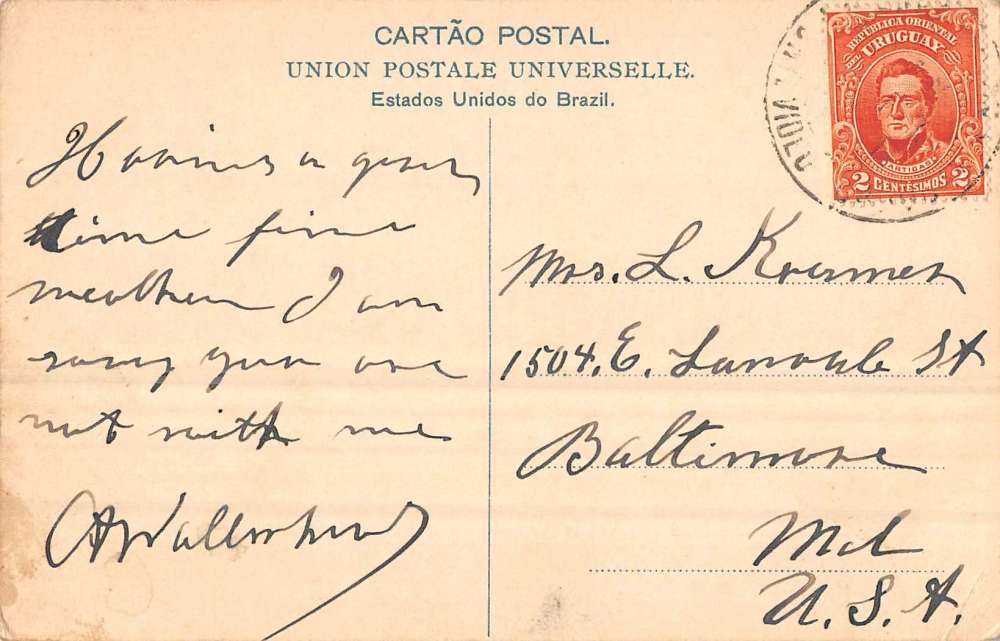 CARTÃO POSTAL.
UNION POSTALE UNIVERSELLE.
Estados Unidos do Brazil.
REPÚBLICA ORIENTAL
DEL URUGUAY
ARTIGAS
2 CENTÉSIMOS 2
Having a good
time fine
weather I am
sorry you are
not with me
Mrs. L. Kramer
1504. E. St
Baltimore
Md
U.S.A.